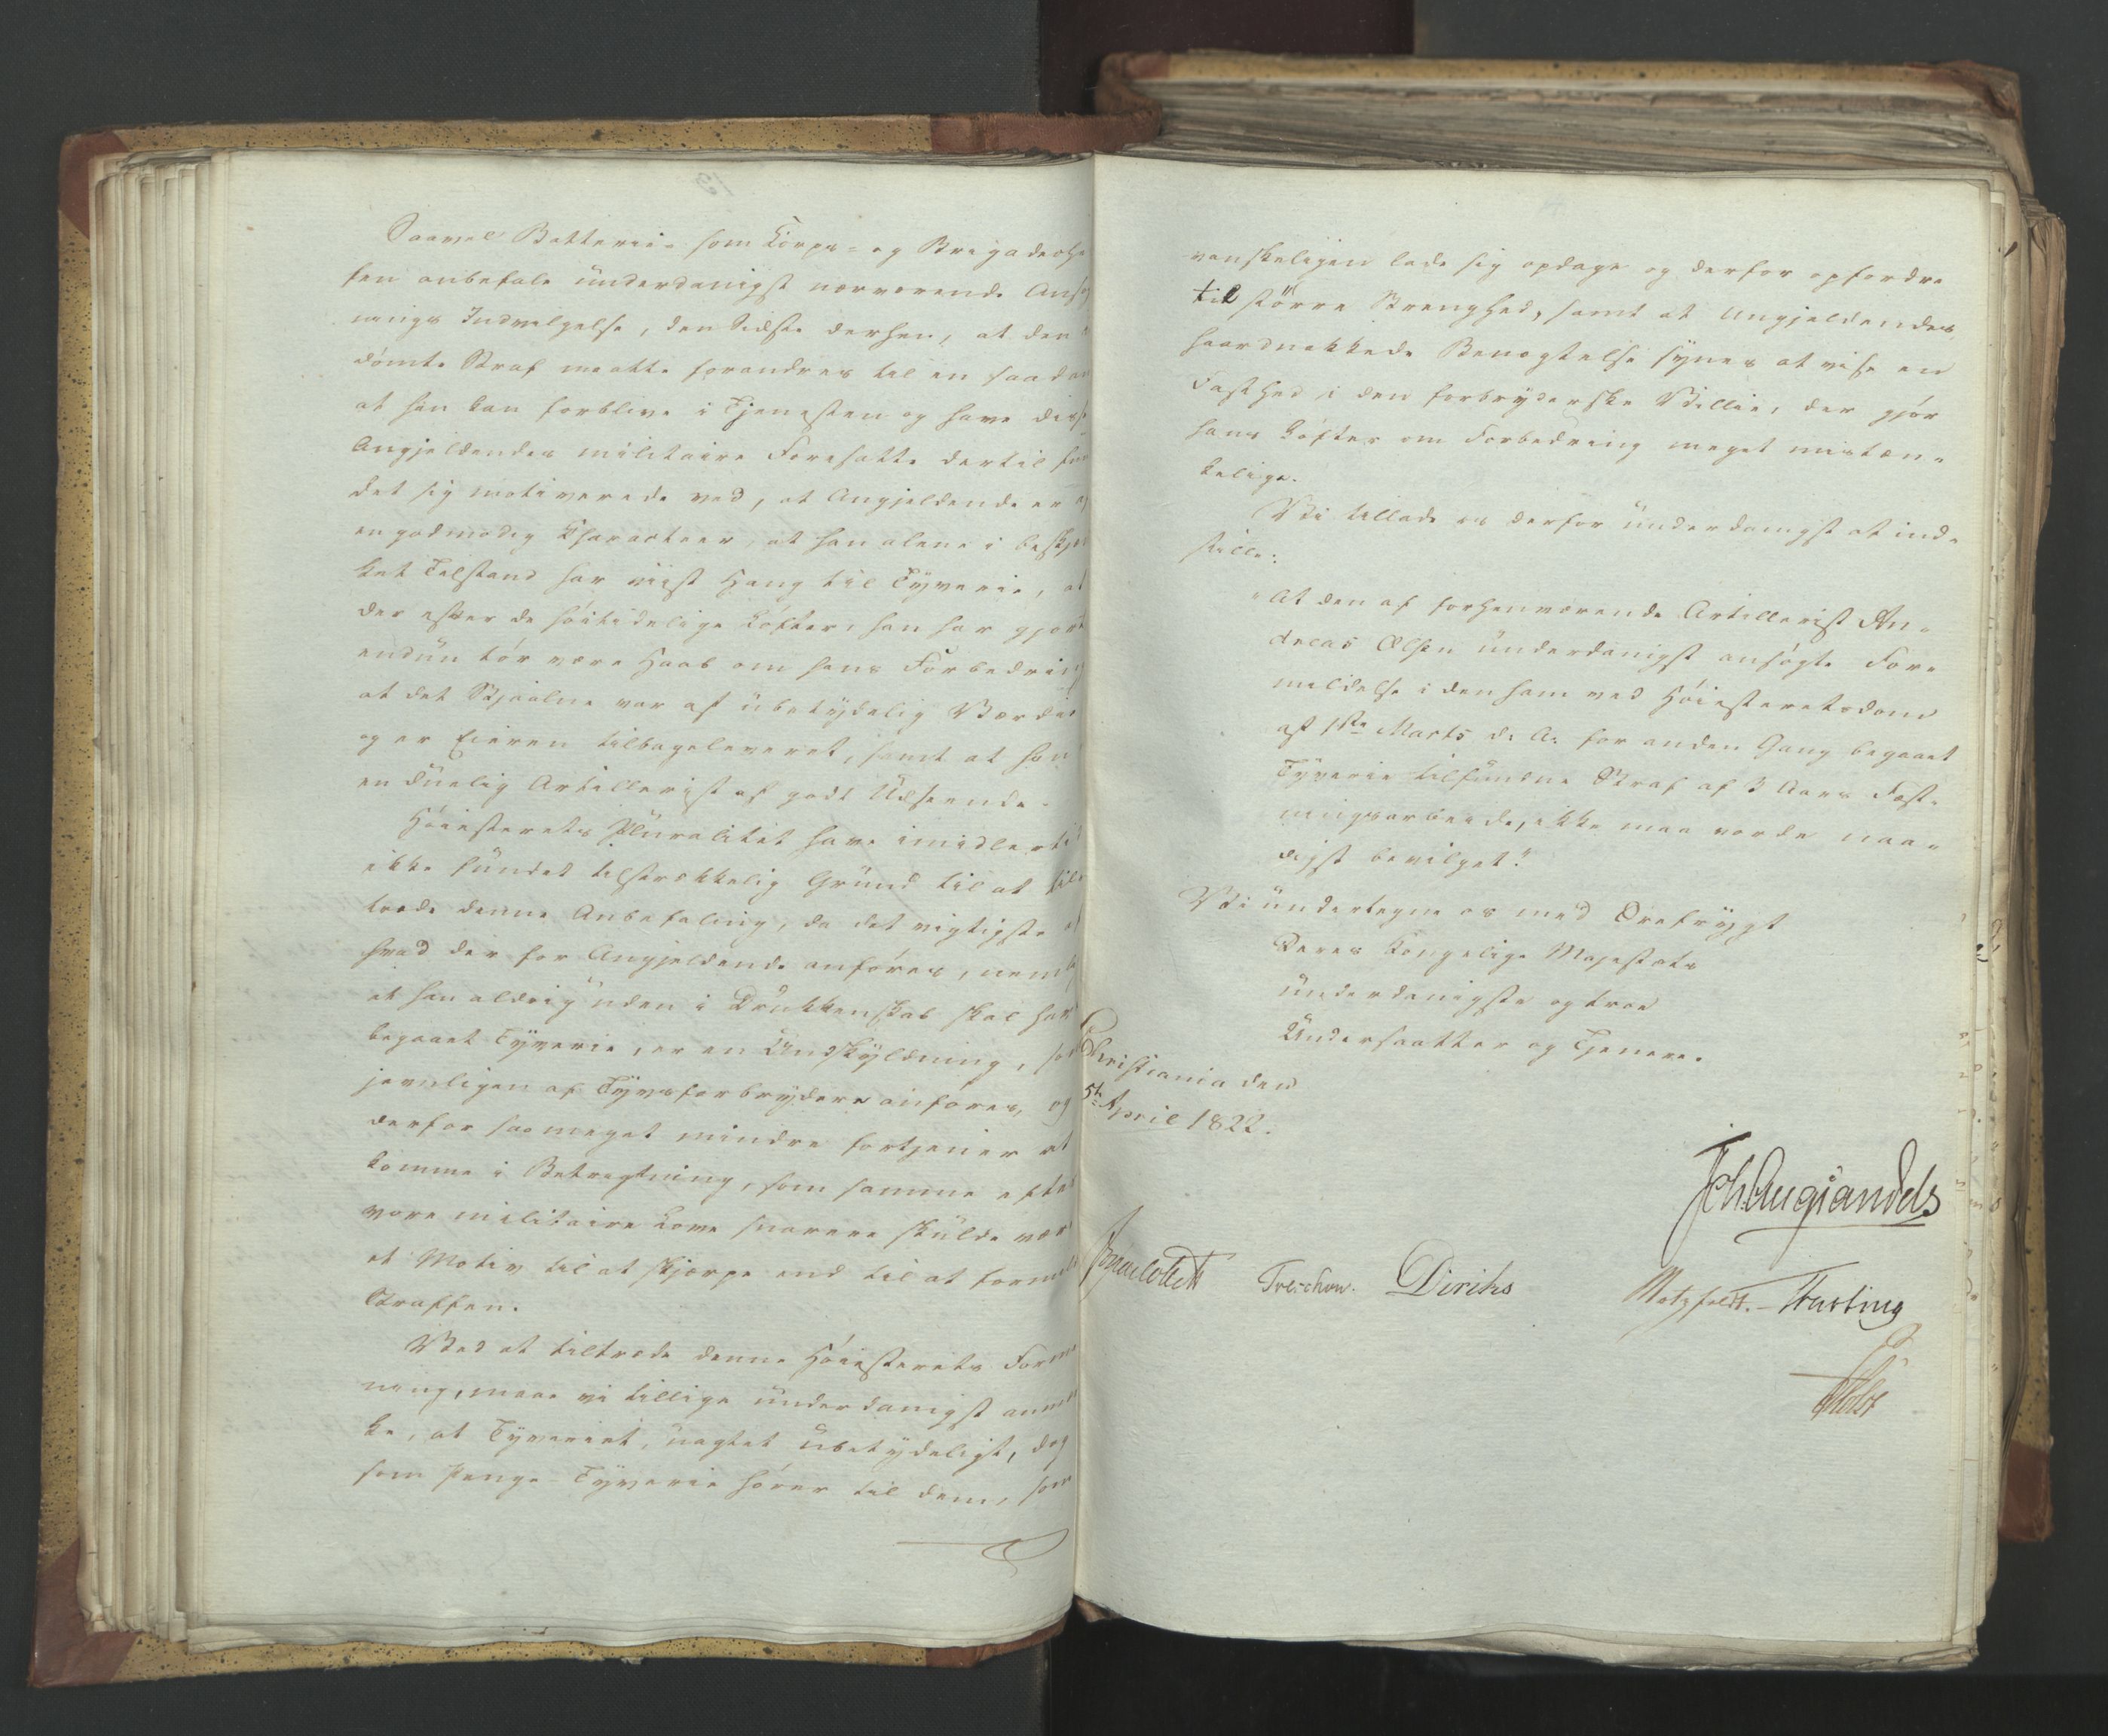 Saavel Batterie- som Korps- og Brigadeche
fen anbefale underdanigst nærværende Ansøg
nings Indvilgelse, den Sidste derhen, at den i
dømte Straf maatte forandres til en saadan
at han kan forblive i Tjenesten og have disse
Angjeldendes militaire Foresatte dertil fun
det sig motiverede ved, at Angjeldende er af
en godmodig Characteer, at han alene i beskjæn
ket Tilstand har viist Hang til Tyverie, at
der efter de høitidelige Løfter, han har gjort
endnu tør være Haab om hans Forbedring
at det Stjaalne var af ubetydelig Værdie
og er Eieren tilbageleveret, samt at han
en duelig Artillerist af godt Udseende.
Høiesterets Pluralitet have imidlertid
ikke fundet tilstrækkelig Grund til at til-
træde denne Anbefaling, da det vigtigste af
hvad der for Angjeldende anføres, neml
at han aldrig uden i Drukkenskab skal have
begaaet Tyverie, er en Undskyldning, som
jevnligen af Tyvsforbrydere anføres, og
derfor saa meget mindre fortjener at
komme i Betragtning, som samme efter
vore militaire Love snarere skulde være
et Motiv til at skjærpe end til at formilde
Straffen.
Ved at tiltræde denne Høiesterets Forme
ning, maae vi tillige underdanigst anmær
ke, at Tyveriet, uagtet ubetydeligt, dog
som Penge-Tyverie hører til dem, som
vanskeligen lade sig opdage og derfor opfordre
til større Strenghed, samt at Angjeldendes
haardnakkede Benægtelse synes at vise en
Fasthed i den forbryderske Villie, der gjør
hans Løfter om Forbedring meget mistæn-
kelige.
Vi tillade os derfor underdanigst at ind-
stille:
"At den af forhenværende Artillerist An-
dreas Olsen underdanigst ansøgte For-
mildelse i den ham ved Høiesteretsdom
af 1ste Marts d. A. for anden Gang begaaet
Tyverie tilfundne Straf af 3 Aars Fæst-
ningsarbeide, ikke maa vorde naa-
digst bevilget."
Vi undertegne os med Ærefrygt
Deres Kongelige Majestæts
underdanigste og troe
Undersaatter og Tjenere.
Christiania den
5te April 1822.
Joh. Aug. Sandels
Jonas Collett Treschow. Diriks Motzfeldt. Fasting
Holst